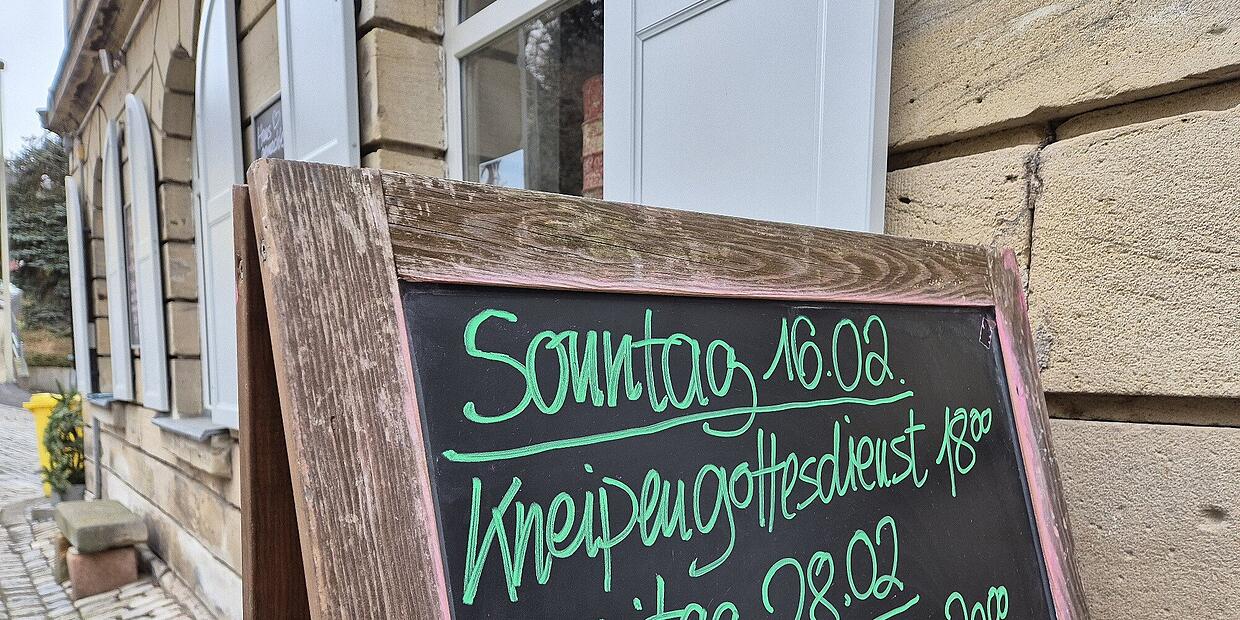 Sonntag 16.02.
Kneipengottesdienst 18⁰⁰
28.02